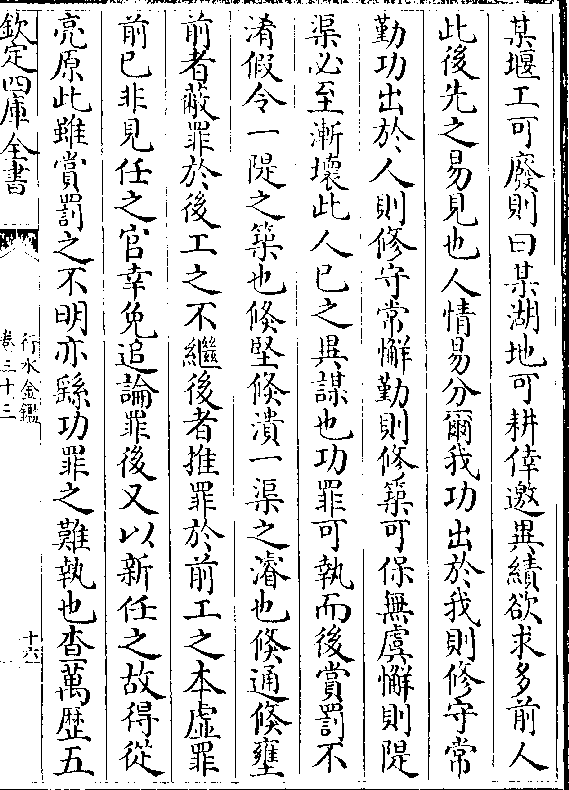 某堰工可廢則曰某湖地可耕倖邀異績欲求多前人
此後先之易見也人情易分爾我功出於我則修守常
勤功出於人則修守常懈勤則修築可保無虞懈則隄
渠必至漸壞此人已之異謀也功罪可執而後賞罰不
淆假令一隄之築也倐堅倐潰一渠之濬也倐通倐壅
前者蔽罪於後工之不繼後者推罪於前工之本虛罪
前已非見任之官幸免追論罪後又以新任之故得從
亮原此雖賞罰之不明亦繇功罪之難執也查萬歴五
欽定四庫全書
行水金鑑
卷三十三
十六